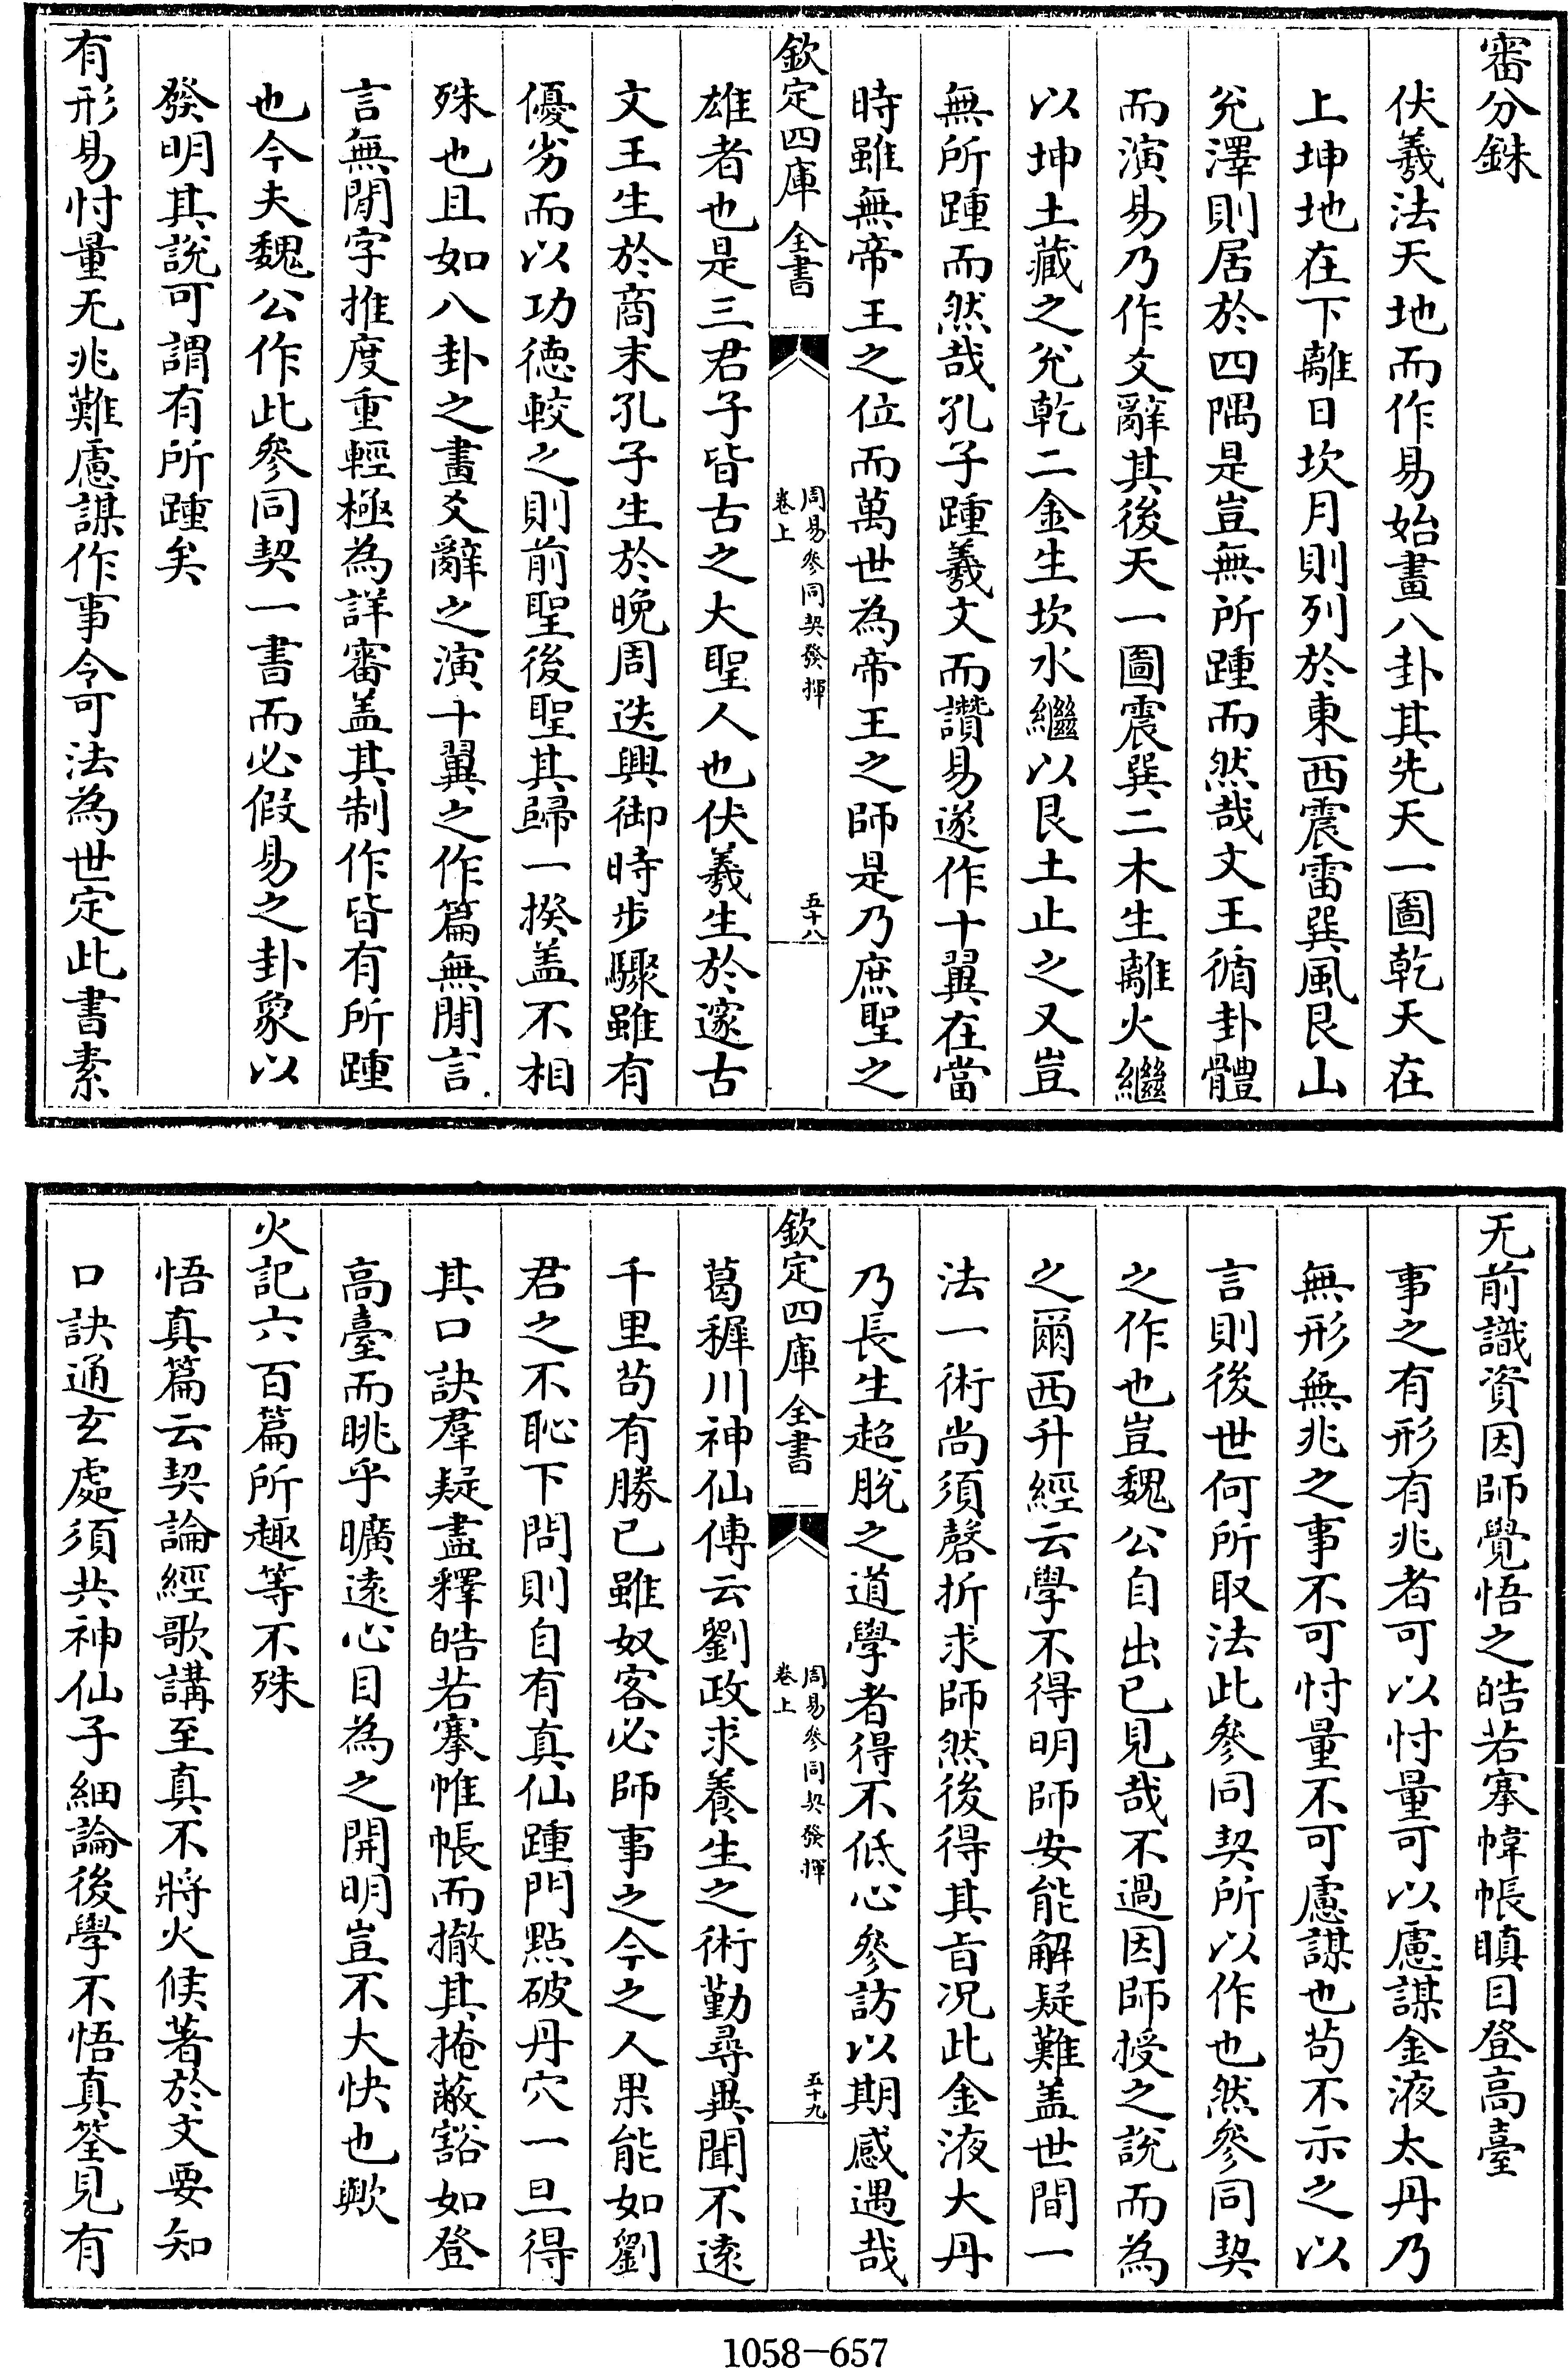 審分銖
伏羲法天地而作易始畫八卦其先天一圖乾天在
上坤地在下離日坎月則列於東西震雷巽風艮山
兊澤則居於四隅是豈無所踵而然哉文王循卦體
而演易乃作爻辭其後天一圖震巽二木生離火繼
以坤土藏之兊乾二金生坎水繼以艮土止之又豈
無所踵而然哉孔子踵羲文而讚易遂作十翼在當
時雖無帝王之位而萬世為帝王之師是乃庶聖之
欽定四庫全書
周易參同契發揮
卷上
五十八
雄者也是三君子皆古之大聖人也伏羲生於邃古
文王生於商末孔子生於晚周迭興御時步驟雖有
優劣而以功徳較之則前聖後聖其歸一揆盖不相
殊也且如八卦之畫爻辭之演十翼之作篇無閒言
言無閒字推度重輕極為詳審盖其制作皆有所踵
也今夫魏公作此參同契一書而必假易之卦象以
發明其說可謂有所踵矣
有形易忖量无兆難慮謀作事令可法為世定此書素
无前識資因師覺悟之皓若搴幃帳瞋目登高臺
事之有形有兆者可以忖量可以慮謀金液太丹乃
無形無兆之事不可忖量不可慮謀也苟不示之以
言則後世何所取法此參同契所以作也然參同契
之作也豈魏公自出已見哉不過因師授之說而為
之爾西升經云學不得明師安能解疑難盖世間一
法一術尚須磬折求師然後得其㫖况此金液大丹
乃長生超脫之道學者得不低心參訪以期感遇哉
欽定四庫全書
周易參同契發揮
卷上
五十九
葛稺川神仙傳云劉政求養生之術勤尋異聞不逺
千里苟有勝已雖奴客必師事之今之人果能如劉
君之不恥下問則自有真仙踵門點破丹穴一旦得
其口訣羣疑盡釋皓若搴帷帳而撤其掩蔽豁如登
高臺而眺乎曠逺心目為之開明豈不大快也歟
火記六百篇所趣等不殊
悟真篇云契論經歌講至真不將火候著於文要知
口訣通玄處須共神仙子細論後學不悟真筌見有
1058—657